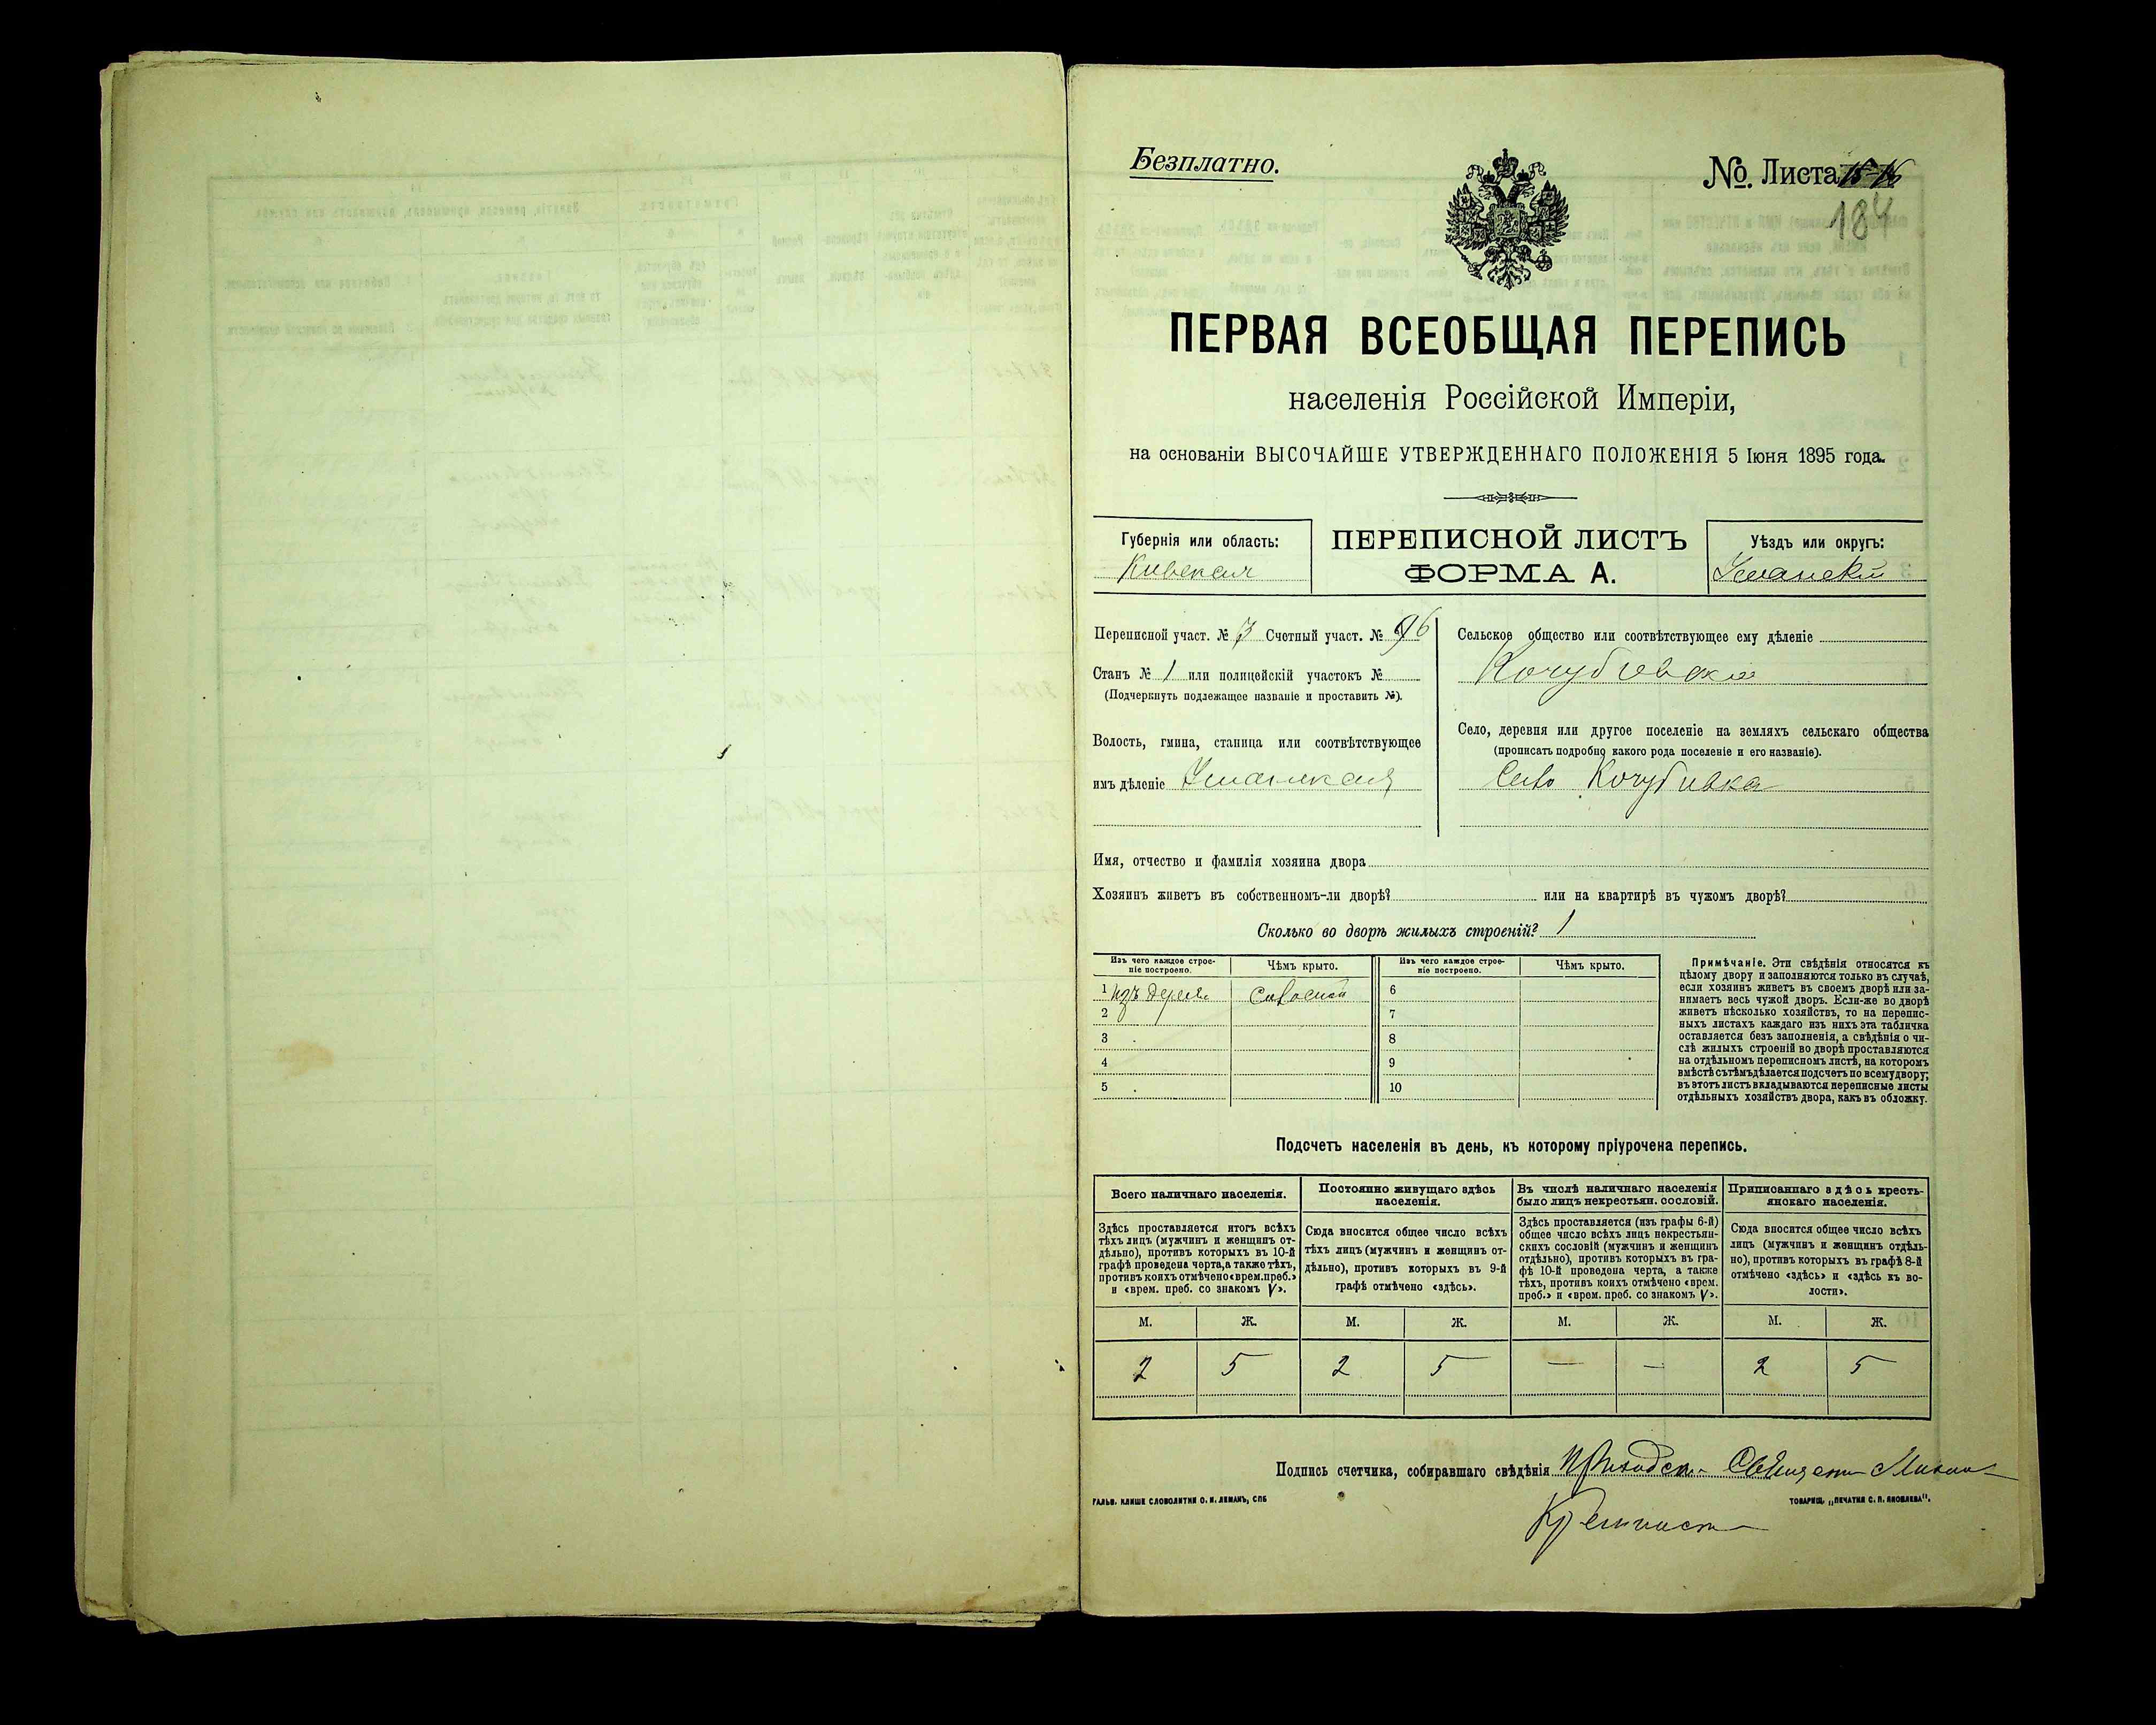 Безплатно.
№. Листа 15-16
184
ПЕРВАЯ ВСЕОБЩАЯ ПЕРЕПИСЬ
населенія Россійской Имперіи,
на основаніи ВЫСОЧАЙШЕ УТВЕРЖДЕННАГО ПОЛОЖЕНІЯ 5 Іюня 1895 года.
Губернія или область:
Кіевская
ПЕРЕПИСНОЙ ЛИСТЪ
ФОРМА А.
Уѣздъ или округъ:
Уманскій
Переписной участ. № 7 Счетный участ. № 96
Станъ № 1 или полицейскій участокъ №
(Подчеркнуть подлежащее названіе и проставить №).
Волость, гмина, станица или соотвѣтствующее
имъ дѣленіе Уманская
Сельское общество или соотвѣтствующее ему дѣленіе
Кочубіевское
Село, деревня или другое поселеніе на земляхъ сельскаго общества
(прописать подробно какого рода поселеніе и его названіе).
Село Кочубивка
Имя, отчество и фамилія хозяина двора
Хозяинъ живетъ въ собственномъ-ли дворѣ? или на квартирѣ въ чужомъ дворѣ?
Сколько во дворѣ жилыхъ строеній? 1
Изъ чего каждое строе-
ніе построено.
Чѣмъ крыто.
Изъ чего каждое строе-
ніе построено.
Чѣмъ крыто.
1 изъ дерева Соломой
6
2
7
3
8
4
9
5
10
Примѣчаніе. Эти свѣдѣнія относятся къ
цѣлому двору и заполняются только въ случаѣ,
если хозяинъ живетъ въ своемъ дворѣ или за-
нимаетъ весь чужой дворъ. Если-же во дворѣ
живетъ нѣсколько хозяйствъ, то на перепис-
ныхъ листахъ каждаго изъ нихъ эта табличка
оставляется безъ заполненія, а свѣдѣнія о чи-
слѣ жилыхъ строеній во дворѣ проставляются
на отдѣльномъ переписномъ листѣ, на которомъ
вмѣстѣ съ тѣмъ дѣлается подсчетъ по всему двору;
въ этотъ листъ вкладываются переписные листы
отдѣльныхъ хозяйствъ двора, какъ въ обложку.
Подсчетъ населенія въ день, къ которому пріурочена перепись.
Всего наличнаго населенія.
Здѣсь проставляется итогъ всѣхъ
тѣхъ лицъ (мужчинъ и женщинъ от-
дѣльно), противъ которыхъ въ 10-й
графѣ проведена черта, а также тѣхъ,
противъ коихъ отмѣчено «врем. преб.»
и «врем. преб. со знакомъ V».
Постоянно живущаго здѣсь
населенія.
Сюда вносится общее число всѣхъ
тѣхъ лицъ (мужчинъ и женщинъ от-
дѣльно), противъ которыхъ въ 9-й
графѣ отмѣчено «здѣсь».
Въ числѣ наличнаго населенія
было лицъ некрестьян. сословій.
Здѣсь проставляется (изъ графы 6-й)
общее число всѣхъ лицъ некрестьян-
скихъ сословій (мужчинъ и женщинъ
отдѣльно), противъ которыхъ въ гра-
фѣ 10-й проведена черта, а также
тѣхъ, противъ коихъ отмѣчено «врем.
преб.» и «врем. преб. со знакомъ V».
Приписаннаго здѣсь кресть-
янскаго населенія.
Сюда вносится общее число всѣхъ
лицъ (мужчинъ и женщинъ отдѣль-
но), противъ которыхъ въ графѣ 8-й
отмѣчено «здѣсь» и «здѣсь къ во-
лости».
М. Ж. М. Ж. М. Ж. М. Ж.
2 5 2 5 — — 2 5
Подпись счетчика, собиравшаго свѣдѣнія Приходск. Священн Михаил
ГАЛЬВ. КЛИШЕ СЛОВОЛИТНИ О. И. ЛЕМАНЪ, СПБ
ТОВАРИЩ. „ПЕЧАТНЯ С. П. ЯКОВЛЕВА".